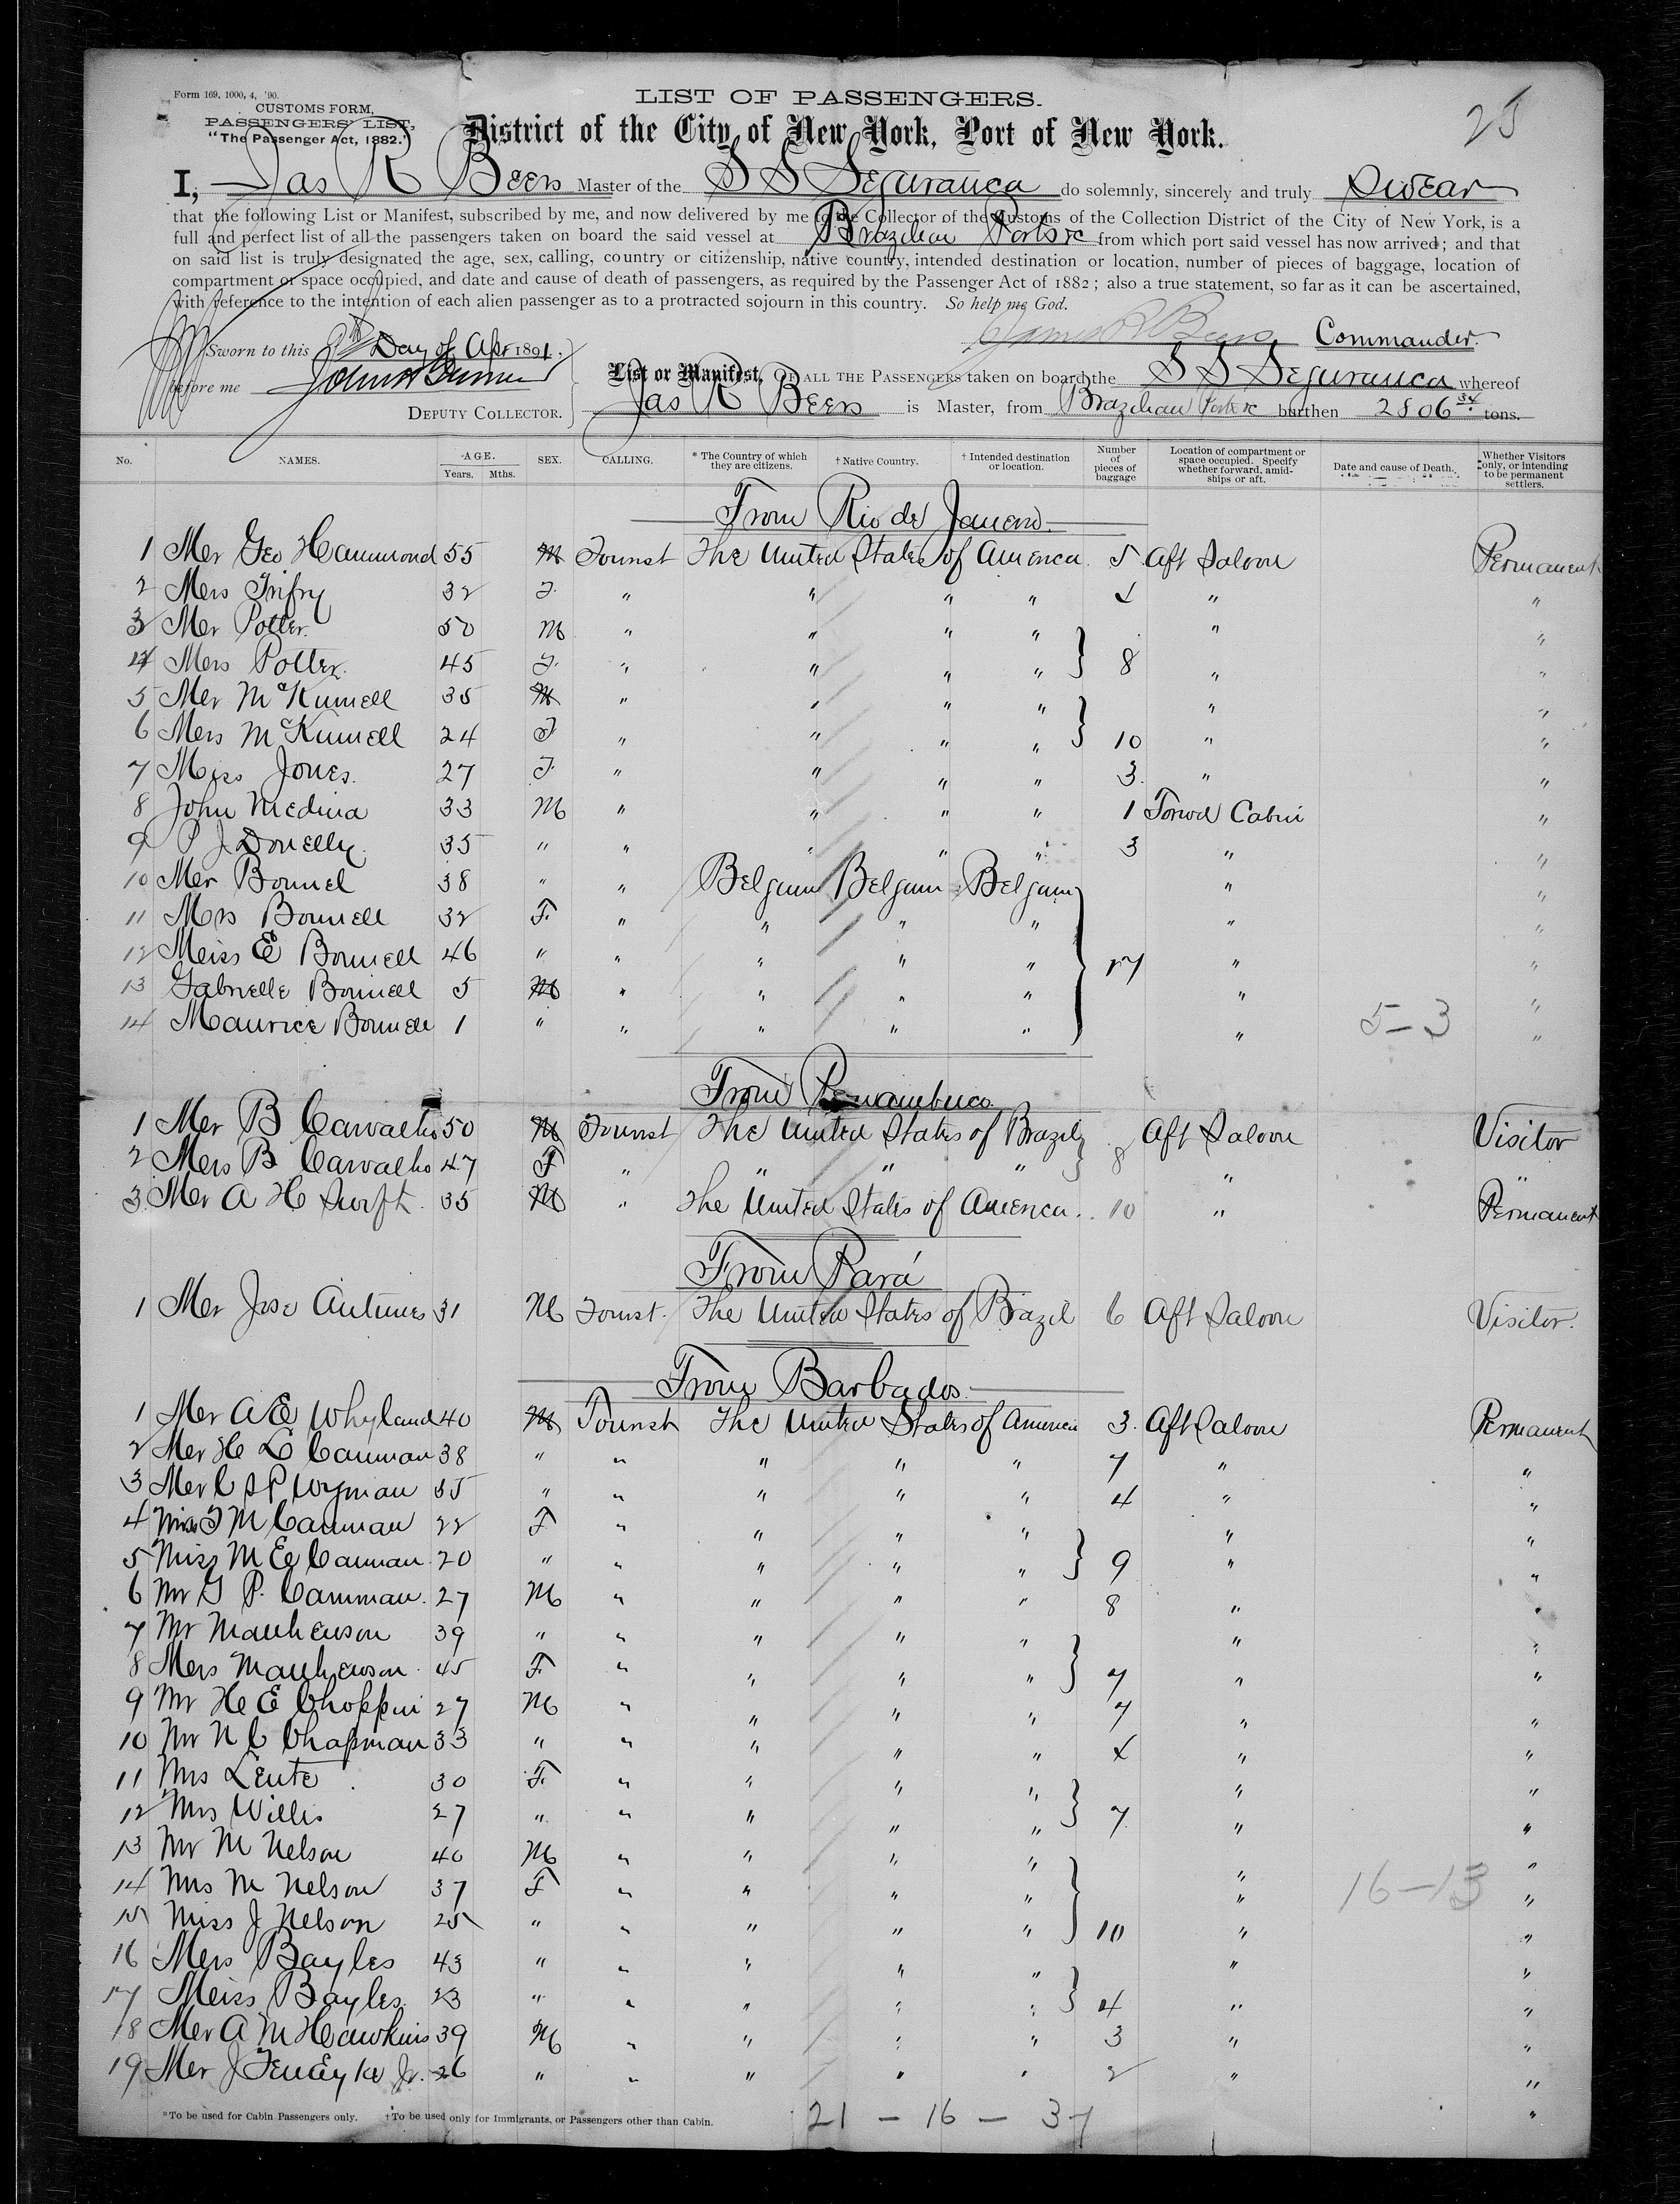 Form 169. 1000, 4, '90.
CUSTOMS FORM,
PASSENGERS' LIST,
"The Passenger Act, 1882."
LIST OF PASSENGERS.
District of the City of New York, Port of New York.
I, Jas R Beers Master of the S S Seguranca do solemnly, sincerely and truly Swear
that the following List or Manifest, subscribed by me, and now delivered by me to the Collector of the Customs of the Collection District of the City of New York, is a
full and perfect list of all the passengers taken on board the said vessel at Brazilian Ports &c from which port said vessel has now arrived; and that
on said list is truly designated the age, sex, calling, country or citizenship, native country, intended destination or location, number of pieces of baggage, location of
compartment or space occupied, and date and cause of death of passengers, as required by the Passenger Act of 1882; also a true statement, so far as it can be ascertained,
with reference to the intention of each alien passenger as to a protracted sojourn in this country. So help me God.
James R Beers Commander.
Sworn to this Day of Apr 1891.
before me
DEPUTY COLLECTOR.
List or Manifest, OF ALL THE PASSENGERS taken on board the S S Seguranca whereof
Jas R Beers is Master, from Brazilian Ports &c burthen 2806 84 tons.
No. NAMES. AGE. Years. Mths. SEX. CALLING. * The Country of which they are citizens. † Native Country. † Intended destination or location. Number of pieces of baggage Location of compartment or space occupied. Specify whether forward, amidships or aft. Date and cause of Death. Whether Visitors only, or intending to be permanent settlers.
From Rio de Janeiro.
1 Mr Geo Hammond 55 M Tourist The United States of America 5 Aft Saloon Permanent
2 Mrs 32 F. " " " " " "
3 Mr Potter. 50 M " " " " " "
4 Mrs Potter. 45 F. " " " " 8 " "
5 Mr McKinnell 35 M " " " " " "
6 Mrs McKinnell 24 F " " " " 10 " "
7 Miss Jones. 27 F. " " " " 3. " "
8 John Medina 33 M " " " " 1 Forwd Cabin "
9 P J Donelly. 35 " " " " " 3 " "
10 Mr Bonnel 38 " " Belgium Belgium Belgium " "
11 Mrs Bonnell 32 F. " " " " " "
12 Miss E Bonnell 46 " " " " " 17 " "
13 Gabrielle Bonnell 5 M " " " " " "
14 Maurice Bonnell 1 " " " " " " "
5-3
From Pernambuco.
1 Mr B Carvalho 50 M Tourist The United States of Brazil Aft Saloon Visitor
2 Mrs B Carvalho 47 F " " " " 8 " "
3. Mr A H Swift. 35 M " The United States of America. 10 " Permanent
From Pará
1 Mr Jose Antunes 31 M Tourist. The United States of Brazil 6 Aft Saloon Visitor.
From Barbados.
1 Mr A E Whyland 40 M Tourist The United States of America 3. Aft Saloon Permanent
2 Mr H L Camman 38 " " " " " 7 " "
3 Mr C S P Wyman 35 " " " " " 4 " "
4 Miss T M Camman 22 F. " " " " " "
5 Miss M E Camman. 20 " " " " " 9 " "
6 Mr G P. Camman. 27 M " " " " 8 " "
7 Mr 39 " " " " " " "
8 Mrs 45 F. " " " " 7 " "
9 Mr H E Choppin 27 M " " " " 7 " "
10 Mr N C Chapman 33 " " " " " " "
11 Mrs Lente 30 F. " " " " " "
12 Mrs Willis 27 " " " " " 7. " "
13 Mr M Nelson 40 M " " " " " "
14 Mrs M Nelson 37 F " " " " " "
16-13
15 Miss J Nelson 25 " " " " " 10 " "
16 Mrs Bayles 43 " " " " " " "
17 Miss Bayles. 23 " " " " " 4 " "
18 Mr A M Hawkins 39 M " " " " 3 " "
19 Mr J TenEyke Jr. 26 " " " " " 2 " "
*To be used for Cabin Passengers only. †To be used only for Immigrants, or Passengers other than Cabin.
21 - 16 - 37